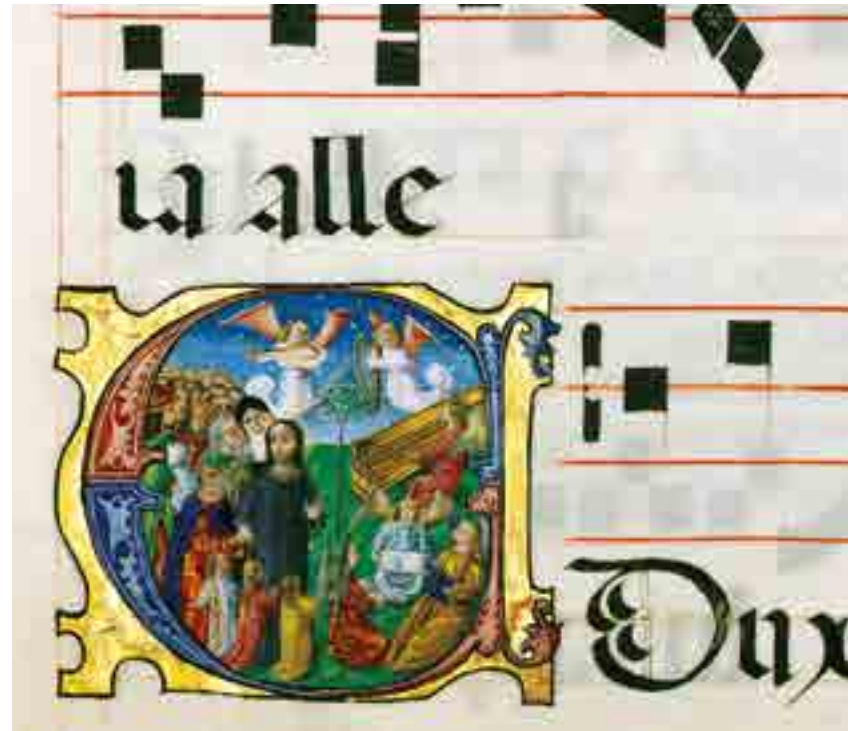 ia alle
EDux